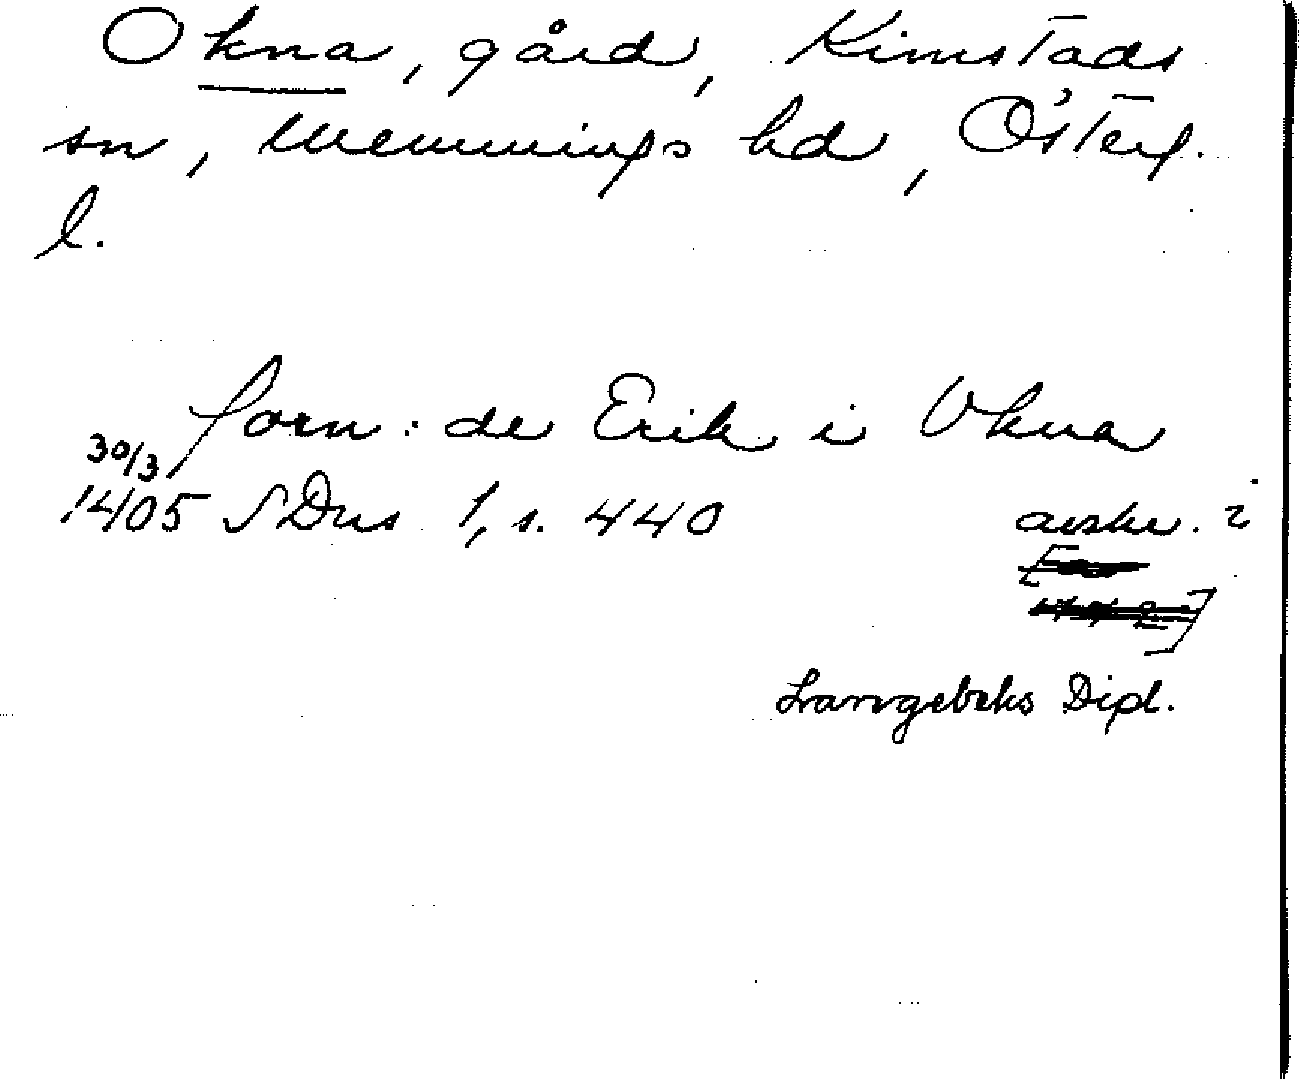 Okna, gård, Kimstads
sn, Memmings hd, Österg.
l.
forn: de Erik i Okna
30/3
1405 SDns 1, s. 440 avskr. i
Langebeks Dipl.